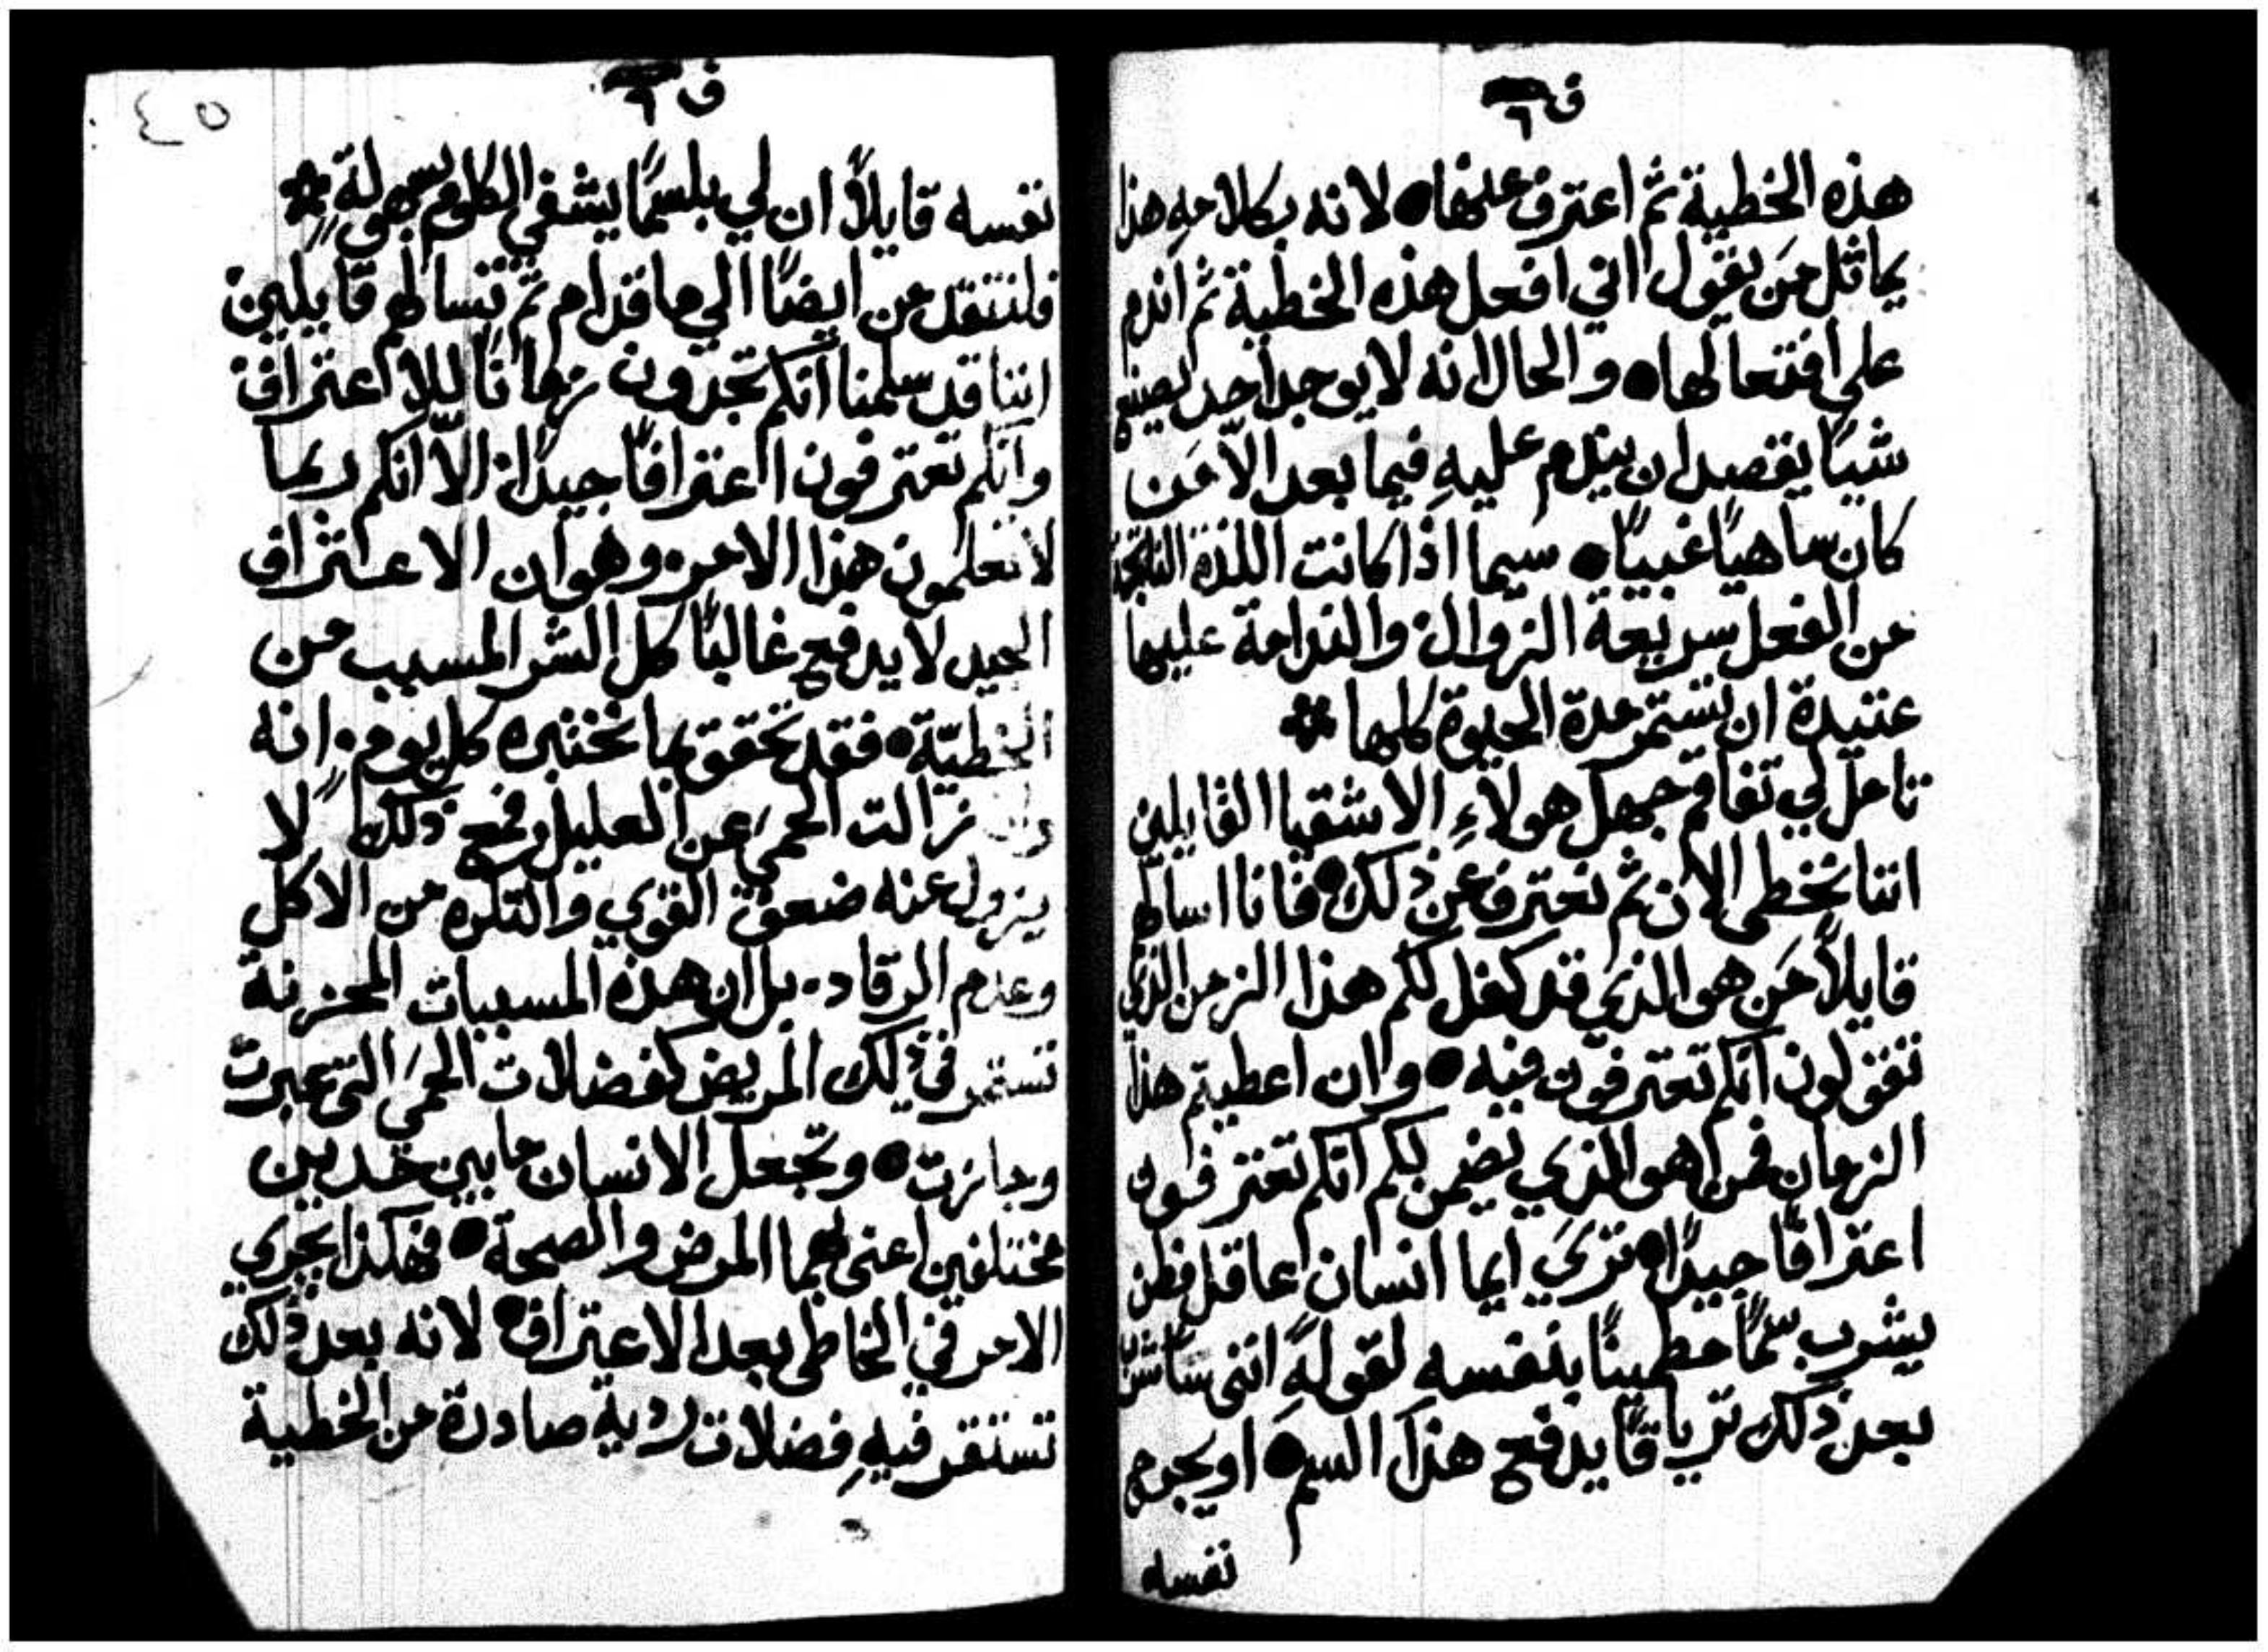 ق ٦
هذه الخطية ثم اعترف عنها • لانه بكلامهِ هذا
يماثل مَن يقول انني افعل هذه الخطية ثم اندم
على افتعالها • والحال انه لا يوجد احد يصنع
شيًا يقصد ان يندم عليهِ فيما بعد الّا مَن
كان ساهيًا غبيًا • سيما اذا كانت اللذة الناتجة
من الفعل سريعة الزوال. والندامة عليها
عتيدة ان تستمر مدة الحيوة كلها ※
تامل لي تفاقم جهل هولاءِ الاشقيا القايلين
اننا نخطي الان ثم نعترف عن ذلك • فانا اسالهم
قايلاً مَن هو الذي قد كفل لكم هذا الزمن الذي
تقولون انكم تعترفون فيه • وان اعطيتم هذا
الزمان فمن هو الذي يضمن لكم انكم تعترفون
اعترافًا جيدًا • ترَي ايما انسان عاقل فطن
يشرب سمًّا مطمينًا بنفسه لقولهِ انني ساشرب
بعد ذلك ترياقًا يدفع هذا السم • او يجرح
نفسه
ق ٦
٤٥
نفسه قايلاً ان لي بلسمًا يشفي الكلوم بسهولةٍ ※
فلننتقل من ايضًا الي ما قدام ثم نسالهم قايلين
اننا قد سلمنا انكم تجدون زمانًا للاعتراف
وانكم تعترفون اعترافًا جيدًا. الّا انكم ربما
لا تعلمون هذا الامر. وهو ان الاعتراف
الجيد لا يدفع غالبًا كل الشر المسبب من
الخطيّة • فقد تحقق بما نختبره كل يوم. انه
وان زالت الحمي عن العليل فمع ذلك لا
يزول عنه ضعف القوي والتكره من الاكل
وعدم الرقاد. بل ان هذه المسببات المحزنة
تستمر في ذلك المريض كفضلات الحمَي التي عبرت
وجازت • وتجعل الانسان ما بين حدين
مختلفين اعني بهما المرض والصحة • فهكذا يجري
الامر في الخاطي بعد الاعتراف • لانه بعد ذلك
تستقر فيهِ فضلات رديةٍ صادرة من الخطية